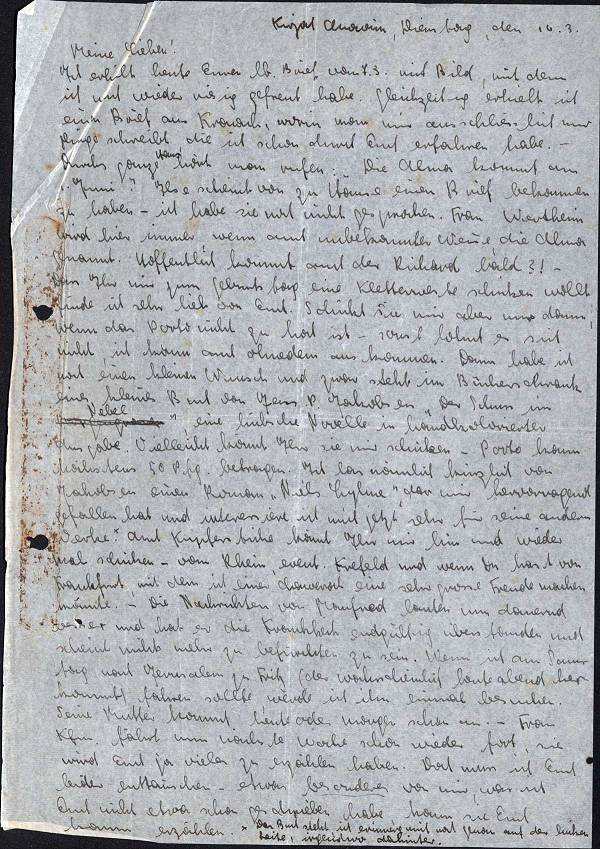 Kirjat Anavim, Dienstag, den 16.3.
Meine Lieben!
Ich erhielt heute Euren lb. Brief vom 7.3. mit Bild, mit dem
ich mich wieder riesig gefreut habe. Gleichzeitig erhielt ich
einen Brief aus, worin man mir ausschliesslich nur
Dinge schreibt, die ich schon durch Euch erfahren habe. –
Durchs ganze Haus hört man rufen: "Die Alma kommt am
". Ilse scheint von zu Hause einen Brief bekommen
zu haben – ich habe sie noch nicht gesprochen. Frau Wertheim
wird hier immer, wenn auch unbekannter Weise die Alma
genannt. Hoffentlich kommt auch der Richard bald?! –
Dass Ihr mir zum Geburtstag eine Kletterweste schicken wollt
finde ich sehr lieb von Euch. Schickt sie mir aber nur dann,
wenn das Porto nicht zu hoch ist – sonst lohnt es sich
nicht, ich kann auch ohnedem auskommen. Dann habe ich
noch einen kleinen Wunsch und zwar steht im Bücherschrank
ein kleines Buch von Jens P. Jakobsen "Der Schuss im
Nebel
" eine hübsche Novelle in handkolorierter
Ausgabe. Vielleicht könnt Ihr sie mir schicken – Porto kann
höchstens 50 Pfg. betragen. Ich las nämlich kürzlich von
Jakobsen einen Roman "Niels Lyhne", der mir hervorragend
gefallen hat und interessiere ich mich jetzt sehr für seine andern
Werke.* Auch Kupferstiche könnt Ihr mir hin und wieder
mal schicken – vom Rhein, event. Krefeld und wenn Du hast von
Frankfurt, mit dem ich einer Chawerah eine sehr grosse Freude machen
könnte. – Die Nachrichten von Manfred lauten nun dauernd
besser und hat er die Krankheit endgültig überstanden und
scheint nichts mehr zu befürchten zu sein. Wenn ich am
nach Jerusalem zu Fritz (der wahrscheinlich heute abend her
kommt) fahren sollte werde ich ihn einmal besuchen.
Seine Mutter kommt heute oder morgen schon an. – Frau
fährt nun nächste Woche schon wieder fort, sie
wird Euch ja vieles zu erzählen haben. Doch muss ich Euch
leider enttäuschen – etwas besonderes von mir, was ich
Euch nicht etwa schon geschrieben habe kann sie Euch
kaum erzählen. * Das Buch steht ich erinnere mich noch genau auf der linken
Seite, irgendwo dahinter.